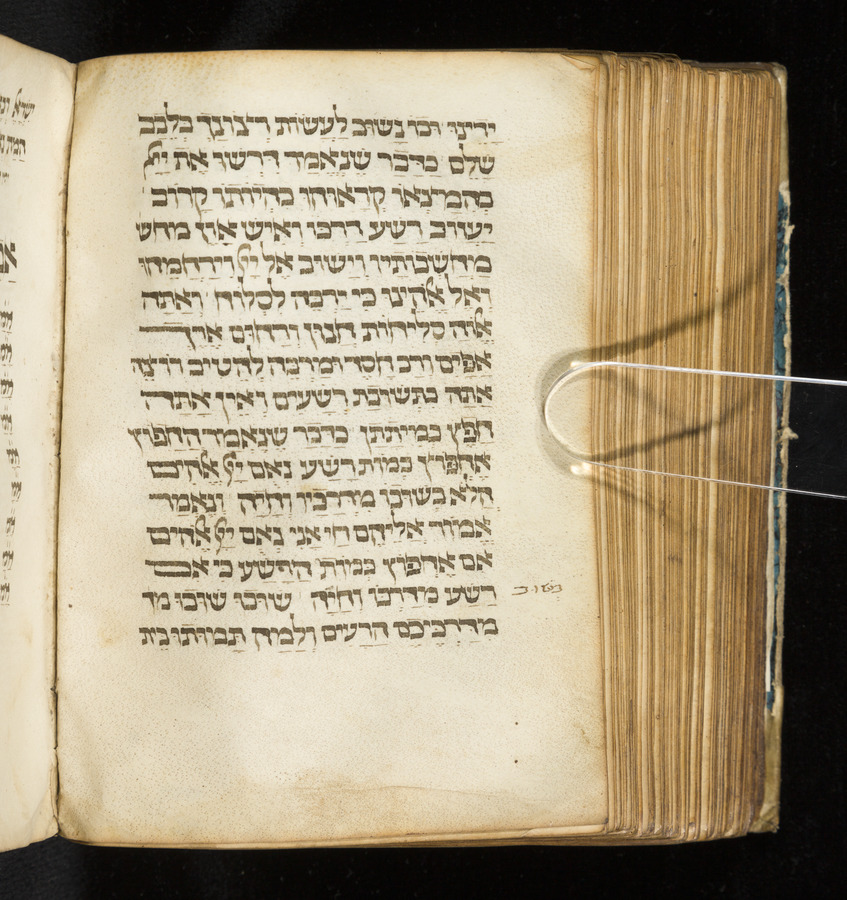 ידינו וכו נשוב לעשות רצונך בלבב
שלם כדבר שנאמר דרשו את ייי
בהמצאו קראוהו בהיותו קרוב
יעזוב רשע דרכו ואיש און מחש
מחשבותיו וישוב אל ייי וירחמהו
ואל אלהינו כי ירבה לסלוח ואתה
אלוה סליחות חנון ורחום ארך
אפים ורב חסד ומרבה להטיב רוצה
אתה בתשובת רשעים ואין אתה
חפץ במיתתן כדבר שנאמר החפוץ
אחפוץ במות רשע נאם ייי אלהים
הלא בשובו מדרכיו וחיה ונאמר
אמור אליהם חי אני נאם ייי אלהים
אם אחפוץ במות הרשע כי אם
רשע מדרכו וחיה שובו שובו מד
מדרכיכם הרעים ולמה תמותו בית
בשוב